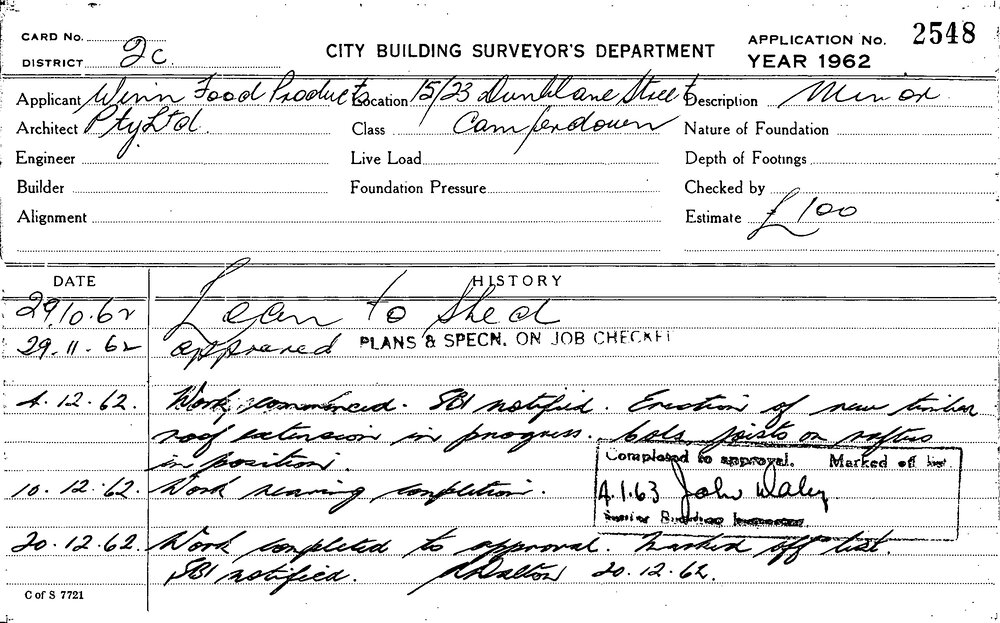 CARD No.
DISTRICT 2c.
CITY BUILDING SURVEYOR'S DEPARTMENT
APPLICATION No. 2548
YEAR 1962
Applicant Winn Food Products Location 15/23 Dunblane Street Description Minor
Architect Pty Ltd. Class Camperdown Nature of Foundation
Engineer Live Load Depth of Footings
Builder Foundation Pressure Checked by
Alignment Estimate £100
DATE HISTORY
29.10.62 to Shed
29.11.62 approved PLANS & SPECN. ON JOB CHECKED
4.12.62. Work commenced. SBI notified. Erection of new timber
roof extension in progress. Cols joists on rafters
in position.
Completed to approval. Marked off list.
10.12.62. Work nearing completion.
4.1.63 John Daley
Senior Building Inspector
20.12.62. Work completed to approval. Marked off list.
SBI notified. Dalton 20.12.62.
C of S 7721